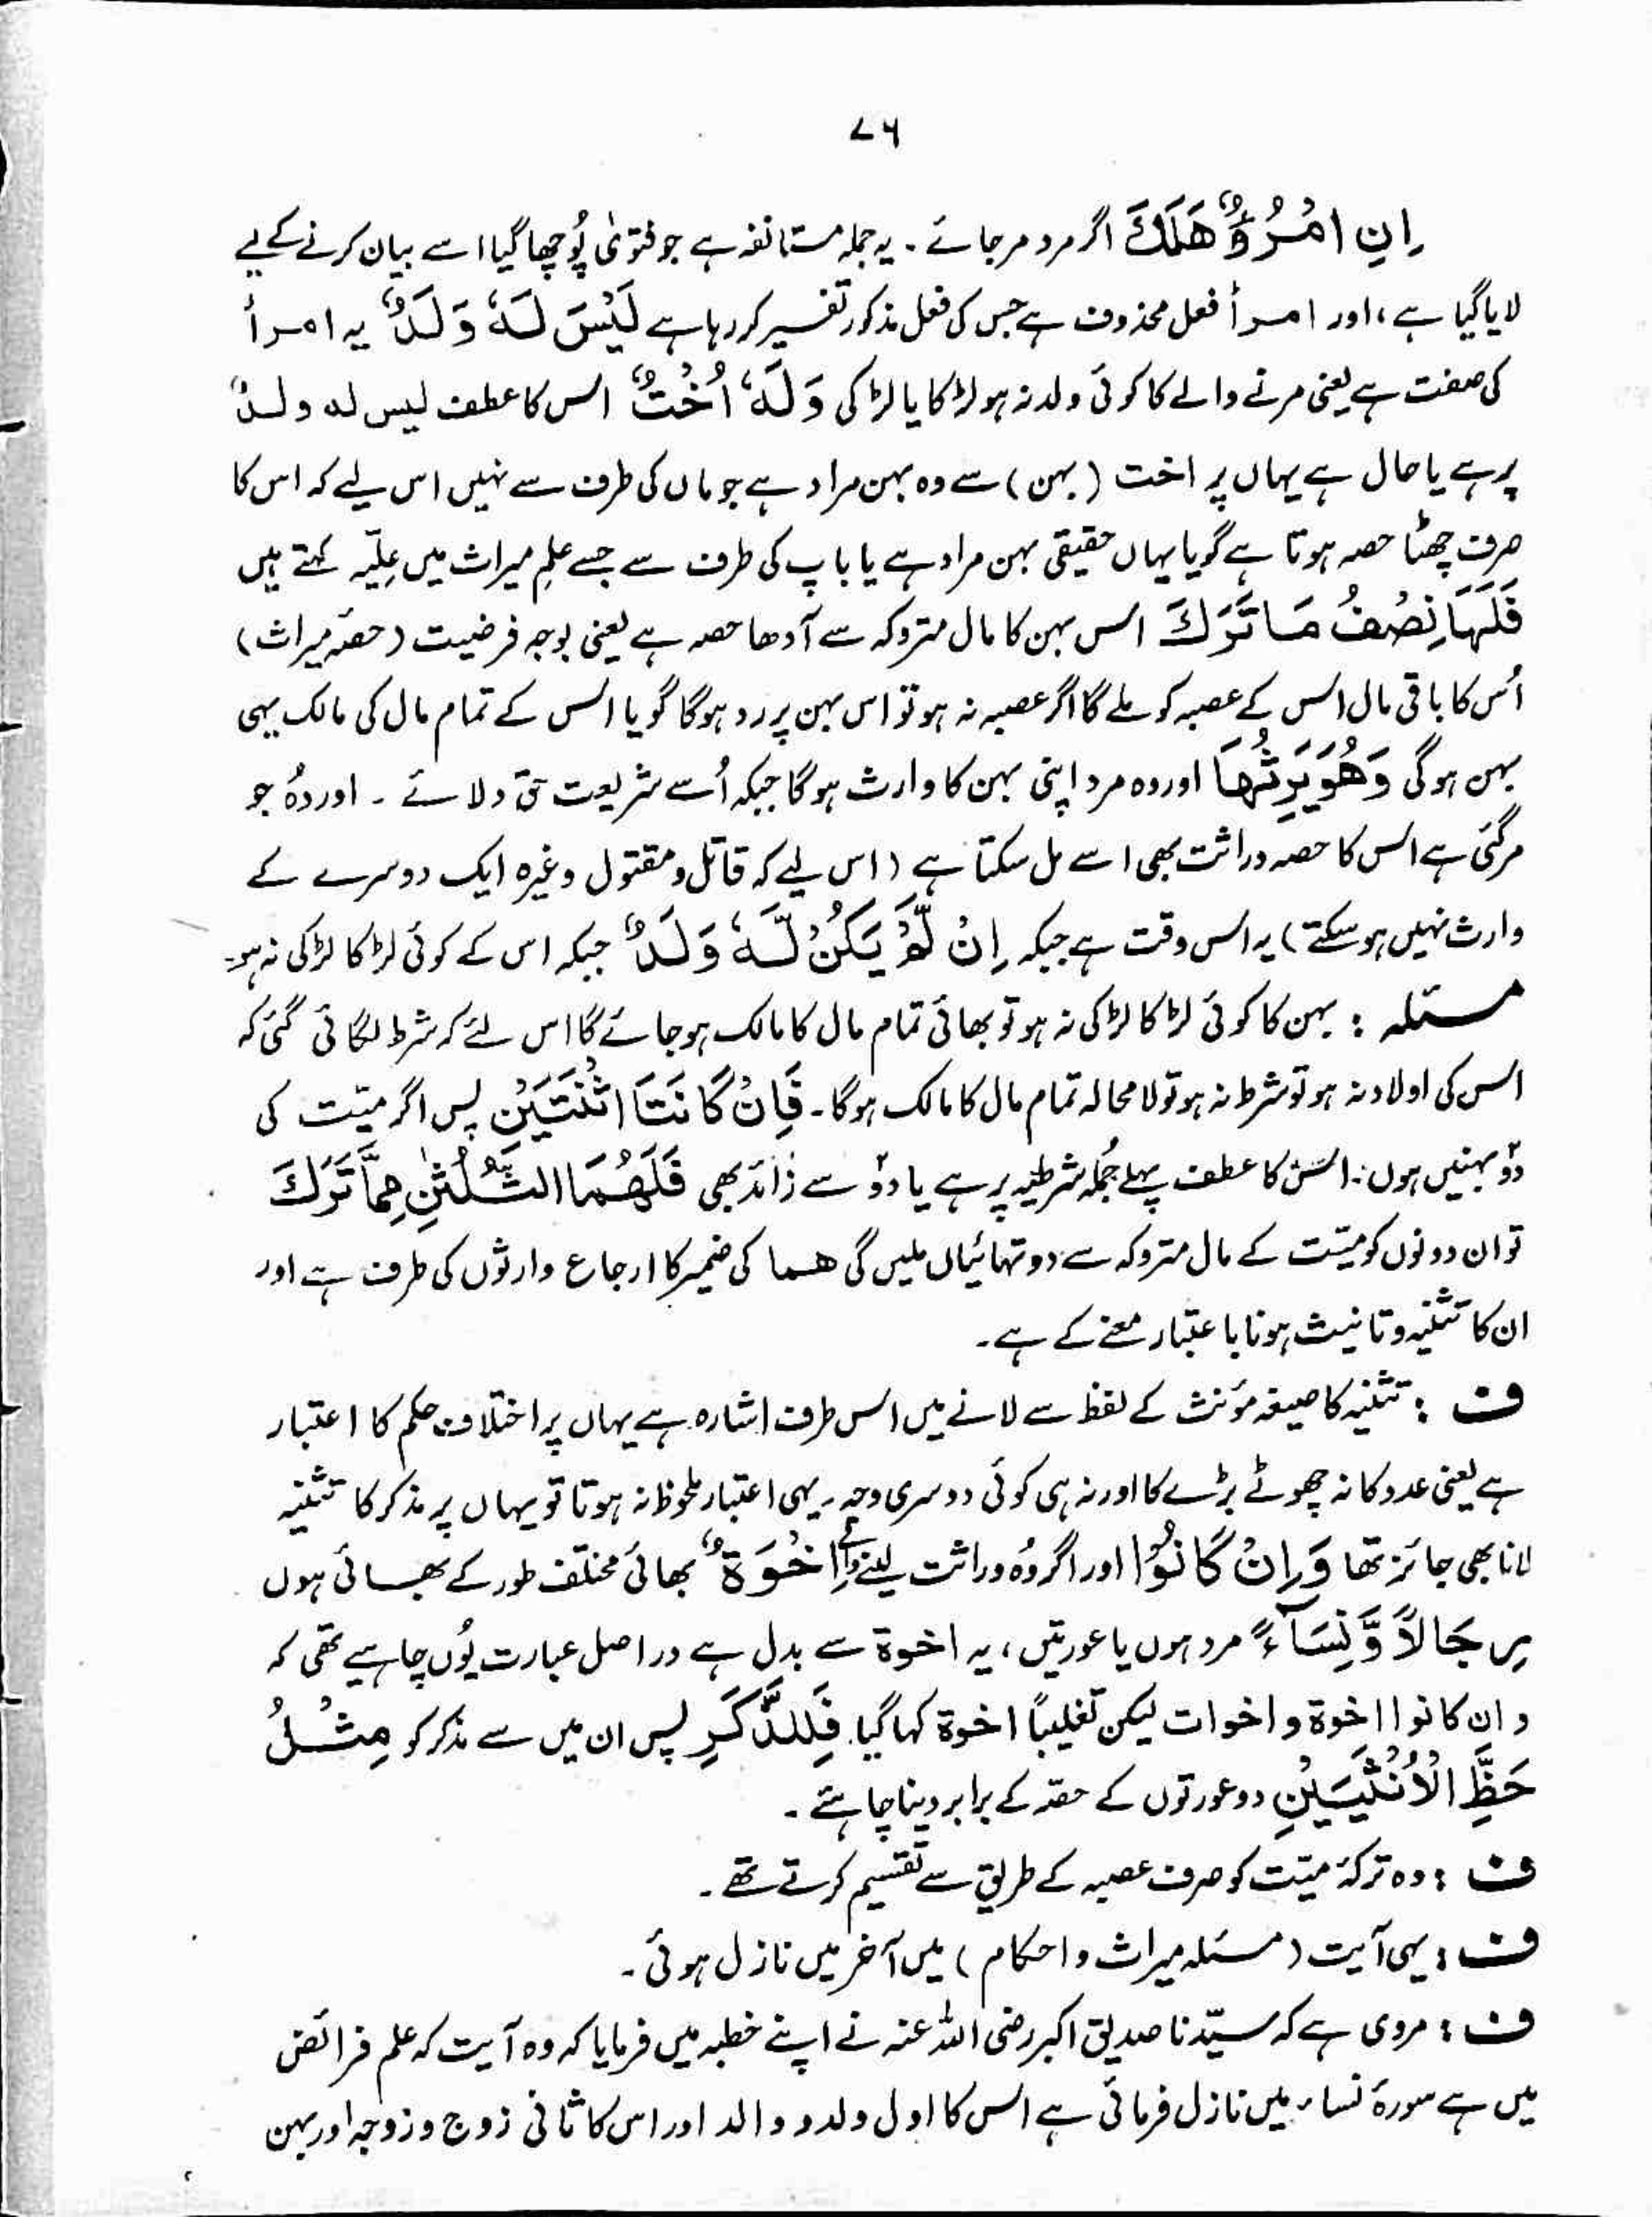 ۷۶
اِنِ امْرُؤٌا هَلَكَ اگر مرد مر جائے ۔ یہ جملہ مستانفہ ہے جو فتویٰ پُوچھا گیا اسے بیان کرنے کے لیے
لایا گیا ہے ، اور امرأ فعل محذوف ہے جس کی فعل مذکور تفسیر کر رہا ہے لَيْسَ لَهٗ وَلَدٌ یہ امرأ
کی صفت ہے یعنی مرنے والے کا کوئی ولد نہ ہو لڑکا یا لڑکی وَلَهٗ اُخْتٌ اس کا عطف لیس لہ ولدٌ
پر ہے یا حال ہے یہاں پر اخت (بہن) سے وہ بہن مراد ہے جو ماں کی طرف سے نہیں اس لیے کہ اس کا
صرف چھٹا حصہ ہوتا ہے گویا یہاں حقیقی بہن مراد ہے یا باپ کی طرف سے جسے علمِ میراث میں عِلّیہ کہتے ہیں
فَلَهَا نِصْفُ مَا تَرَكَ اس بہن کا مال متروکہ سے آدھا حصہ ہے یعنی بوجہ فرضیت (حصۂ میراث)
اُس کا باقی مال اس کے عصبہ کو ملے گا اگر عصبہ نہ ہو تو اس بہن پر رد ہوگا گویا اس کے تمام مال کی مالک یہی
بہن ہوگی وَهُوَ يَرِثُهَا اور وہ مرد اپنی بہن کا وارث ہوگا جبکہ اُسے شریعت حق دلائے ۔ اور وُہ جو
مر گئی ہے اس کا حصہ وراثت بھی اسے مل سکتا ہے (اس لیے کہ قاتل و مقتول وغیرہ ایک دوسرے کے
وارث نہیں ہو سکتے) یہ اس وقت ہے جبکہ اِنْ لَّمْ يَكُنْ لَّهٗ وَلَدٌ جبکہ اس کے کوئی لڑکا لڑکی نہ ہو۔
مسئلہ : بہن کا کوئی لڑکا لڑکی نہ ہو تو بھائی تمام مال کا مالک ہو جائے گا اس لئے کہ شرط لگائی گئی کہ
اس کی اولاد نہ ہو تو شرط نہ ہو تو لامحالہ تمام مال کا مالک ہوگا ۔ فَاِنْ كَانَتَا اثْنَتَيْنِ پس اگر میّت کی
دوٗ بہنیں ہوں ۔ اس کا عطف پہلے جُملہ شرطیہ پر ہے یا دوٗ سے زائد بھی فَلَهُمَا الثُّلُثٰنِ مِمَّا تَرَكَ
تو ان دونوں کو میّت کے مال متروکہ سے دو تہائیاں ملیں گی ھما کی ضمیر کا ارجاع وارثوں کی طرف ہے اور
ان کا تثنیہ و تانیث ہونا با عتبار معنے کے ہے ۔
ف : تثنیہ کا صیغہ مؤنث کے لفظ سے لانے میں اس طرف اشارہ ہے یہاں پر اختلاف حکم کا اعتبار
ہے یعنی عدد کا نہ چھوٹے بڑے کا اور نہ ہی کوئی دوسری وجہ ۔ یہی اعتبار ملحوظ نہ ہوتا تو یہاں پر مذکر کا تثنیہ
لانا بھی جائز تھا وَاِنْ كَانُوْا اور اگر وُہ وراثت لینے والے اِخْوَةً بھائی مختلف طور کے بھائی ہوں
رِجَالًا وَّنِسَآءً مرد ہوں یا عورتیں ، یہ اخوۃ سے بدل ہے در اصل عبارت یُوں چاہیے تھی کہ
و ان کانوا اخوۃ و اخوات لیکن تغلیباً اخوۃ کہا گیا فَلِلذَّكَرِ پس ان میں سے مذکر کو مِثْلُ
حَظِّ الْاُنْثَيَيْنِ دو عورتوں کے حصّہ کے برابر دینا چاہئے ۔
ف : وہ ترکۂ میّت کو صرف عصبہ کے طریق سے تقسیم کرتے تھے ۔
ف : یہی آیت (مسئلہ میراث و احکام) میں آخر میں نازل ہوئی ۔
ف : مروی ہے کہ سیّدنا صدیق اکبر رضی اللہ عنہ نے اپنے خطبہ میں فرمایا کہ وہ آیت کہ علم فرائض
میں ہے سورۂ نساء میں نازل فرمائی ہے اس کا اول ولد و والد اور اس کا ثانی زوج و زوجہ اور بہن